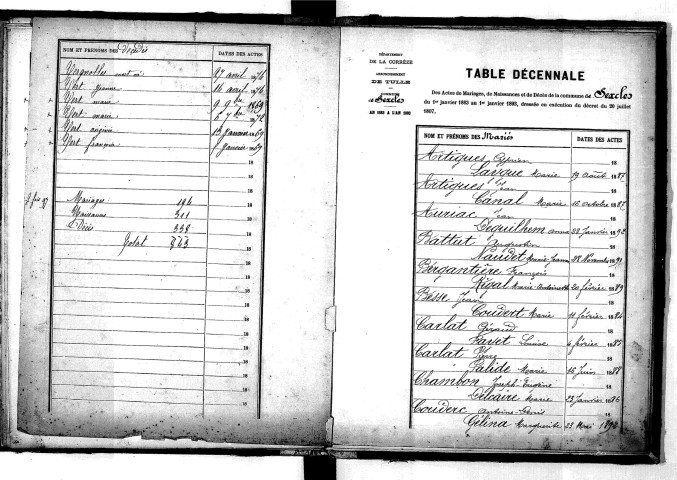 NOM ET PRÉNOMS DES Décédés DATES DES ACTES
Vergnolles mort né 27 avril 1876
Vert Jeanne 16 avril 1876
Vert marie 9 9bre 1869
Vert marie 6 7bre 1872
Vert 13 Janvier 1869
Vert françoise Janvier 18
18
18
Mariages 194
Naissances 311
Décès 338
Total 843
18
18
18
18
18
18
18
18
DÉPARTEMENT
DE LA CORRÈZE
ARRONDISSEMENT
DE TULLE
COMMUNE
de Sexcles
AN 1883 A L'AN 1893
TABLE DÉCENNALE
Des Actes de Mariages, de Naissances et de Décès de la commune de Sexcles
du 1er janvier 1883 au 1er janvier 1893, dressée en exécution du décret du 20 juillet
1807.
NOM ET PRÉNOMS DES Mariés DATES DES ACTES
Artigues Cyprien 18
Lavque Marie 19 août 1887
Artigues Jean 18
Canal Marie 16 octobre 1887
Auriac Jean 18
Deguilhem anna 28 Janvier 1892
Battut 18
Naudet Marie Jeanne 28 Novembre 1891
Bergantière François 18
Rigal Marie Antoinette 20 février 1889
Besse Jean 18
Coudert Marie 11 février 1884
Carlat Géraud 18
Farget Louise 4 février 1885
Carlat Pierre 18
Salide Marie 16 Juin 1888
Chambon Joseph Eugène 18
Delcaire Marie 23 Janvier 1886
Couderc Antoine Denis 18
Célina Marguerite 23 Mai 1892